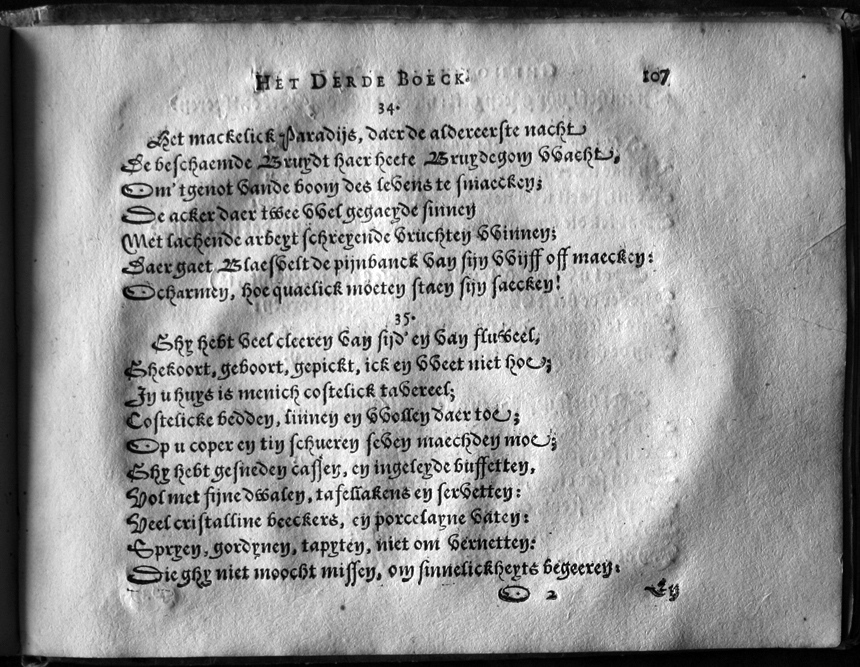 HET DERDE BOECK.
107
34.
Het mackelick Paradijs, daer de aldereerste nacht
De beschaemde Bruydt haer heete Bruydegom wacht,
Om 't genot vande boom des levens te smaecken;
De acker daer twee wel gegaeyde sinnen
Met lachende arbeyt schreyende vruchten winnen;
Daer gaet Blaesvelt de pijnbanck van sijn wijff off maecken:
Ocharmen, hoe quaelick moeten staen sijn saecken!
35.
Ghy hebt veel cleeren van sijd' en van fluweel,
Ghekoort, geboort, gepickt, ick en weet niet hoe;
In u huys is menich costelick tavereel;
Costelicke bedden, linnen en wollen daer toe;
Op u coper en tin schueren seven maechden moe;
Ghy hebt gesneden cassen, en ingeleyde buffetten,
Vol met fijne dwalen, tafellakens en servetten:
Veel cristalline beeckers, en porcelayne vaten:
Spreyen, gordynen, tapyten, niet om vernetten:
Die ghy niet moocht missen, om sinnelickheyts begeeren:
O 2
En